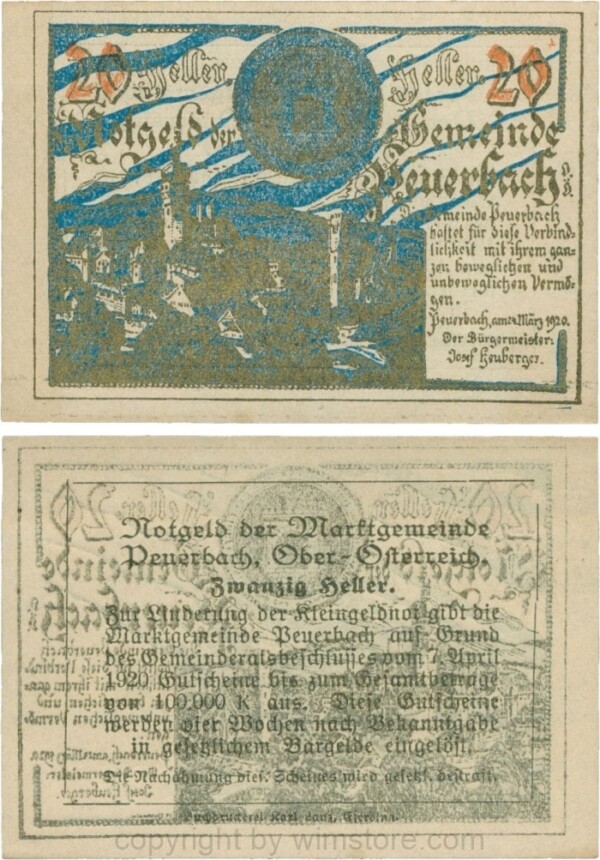 20 Heller.
Heller. 20
Notgeld der
Gemeinde
Peuerbach
Die Gemeinde Peuerbach
haftet für diese Verbind-
lichkeit mit ihrem gan-
zen beweglichen und
unbeweglichen Vermö-
gen.
Peuerbach, am März 1920.
Der Bürgermeister:
Josef Heuberger.
Notgeld der Marktgemeinde
Peuerbach, Ober-Österreich.
Zwanzig Heller.
Zur Linderung der Kleingeldnot gibt die
Marktgemeinde Peuerbach auf Grund
des Gemeinderatsbeschlusses vom 7. April
1920 Gutscheine bis zum Gesamtbetrage
von 100.000 K aus. Diese Gutscheine
werden vier Wochen nach Bekanntgabe
in gesetzlichem Bargelde eingelöst.
Die Nachahmung dies. Scheines wird gesetzl. bestraft.
Buchdruckerei Karl
copyright by wimstore.com